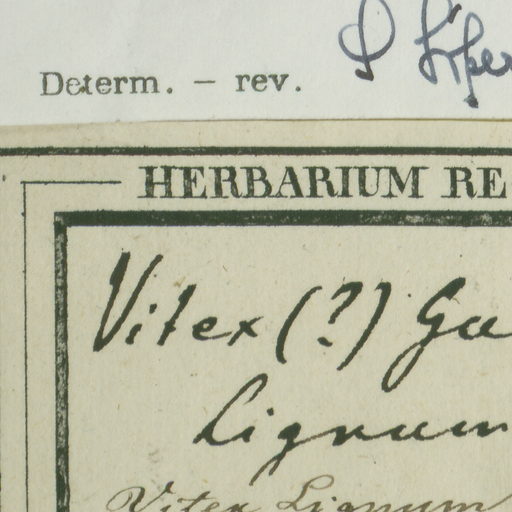 Determ. – rev.
HERBARIUM RE
Vitex (?) Gu
Lignum
Vitex Lignum